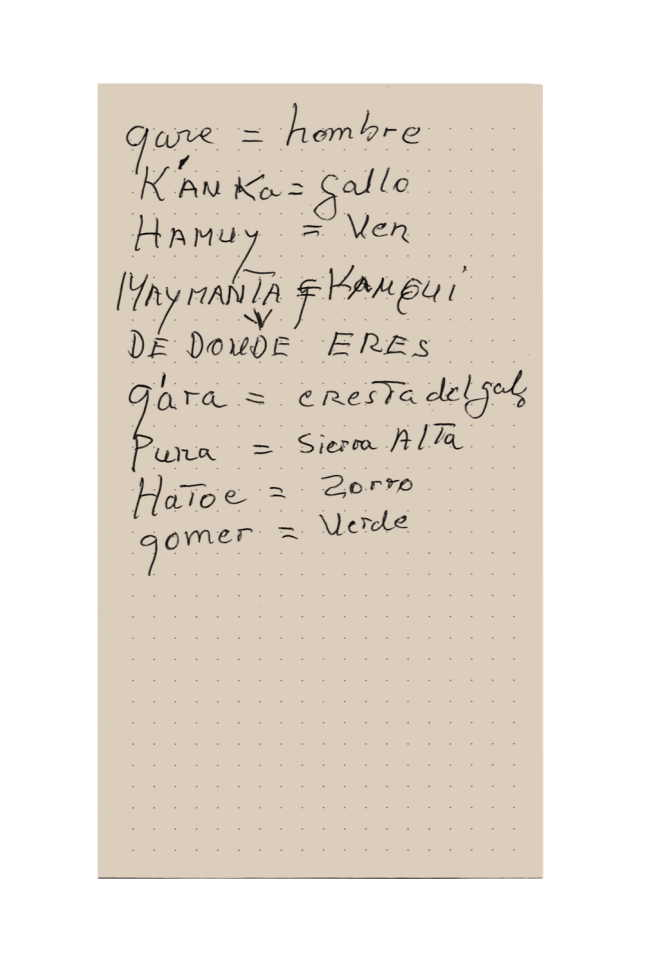 qare = hombre
K'ANKa = gallo
HAMUY = Ven
MAYMANTA KANQUI
DE DONDE ERES
q'ara = cresta del gallo
Puna = Sierra Alta
HaToe = Zorro
qomer = Verde